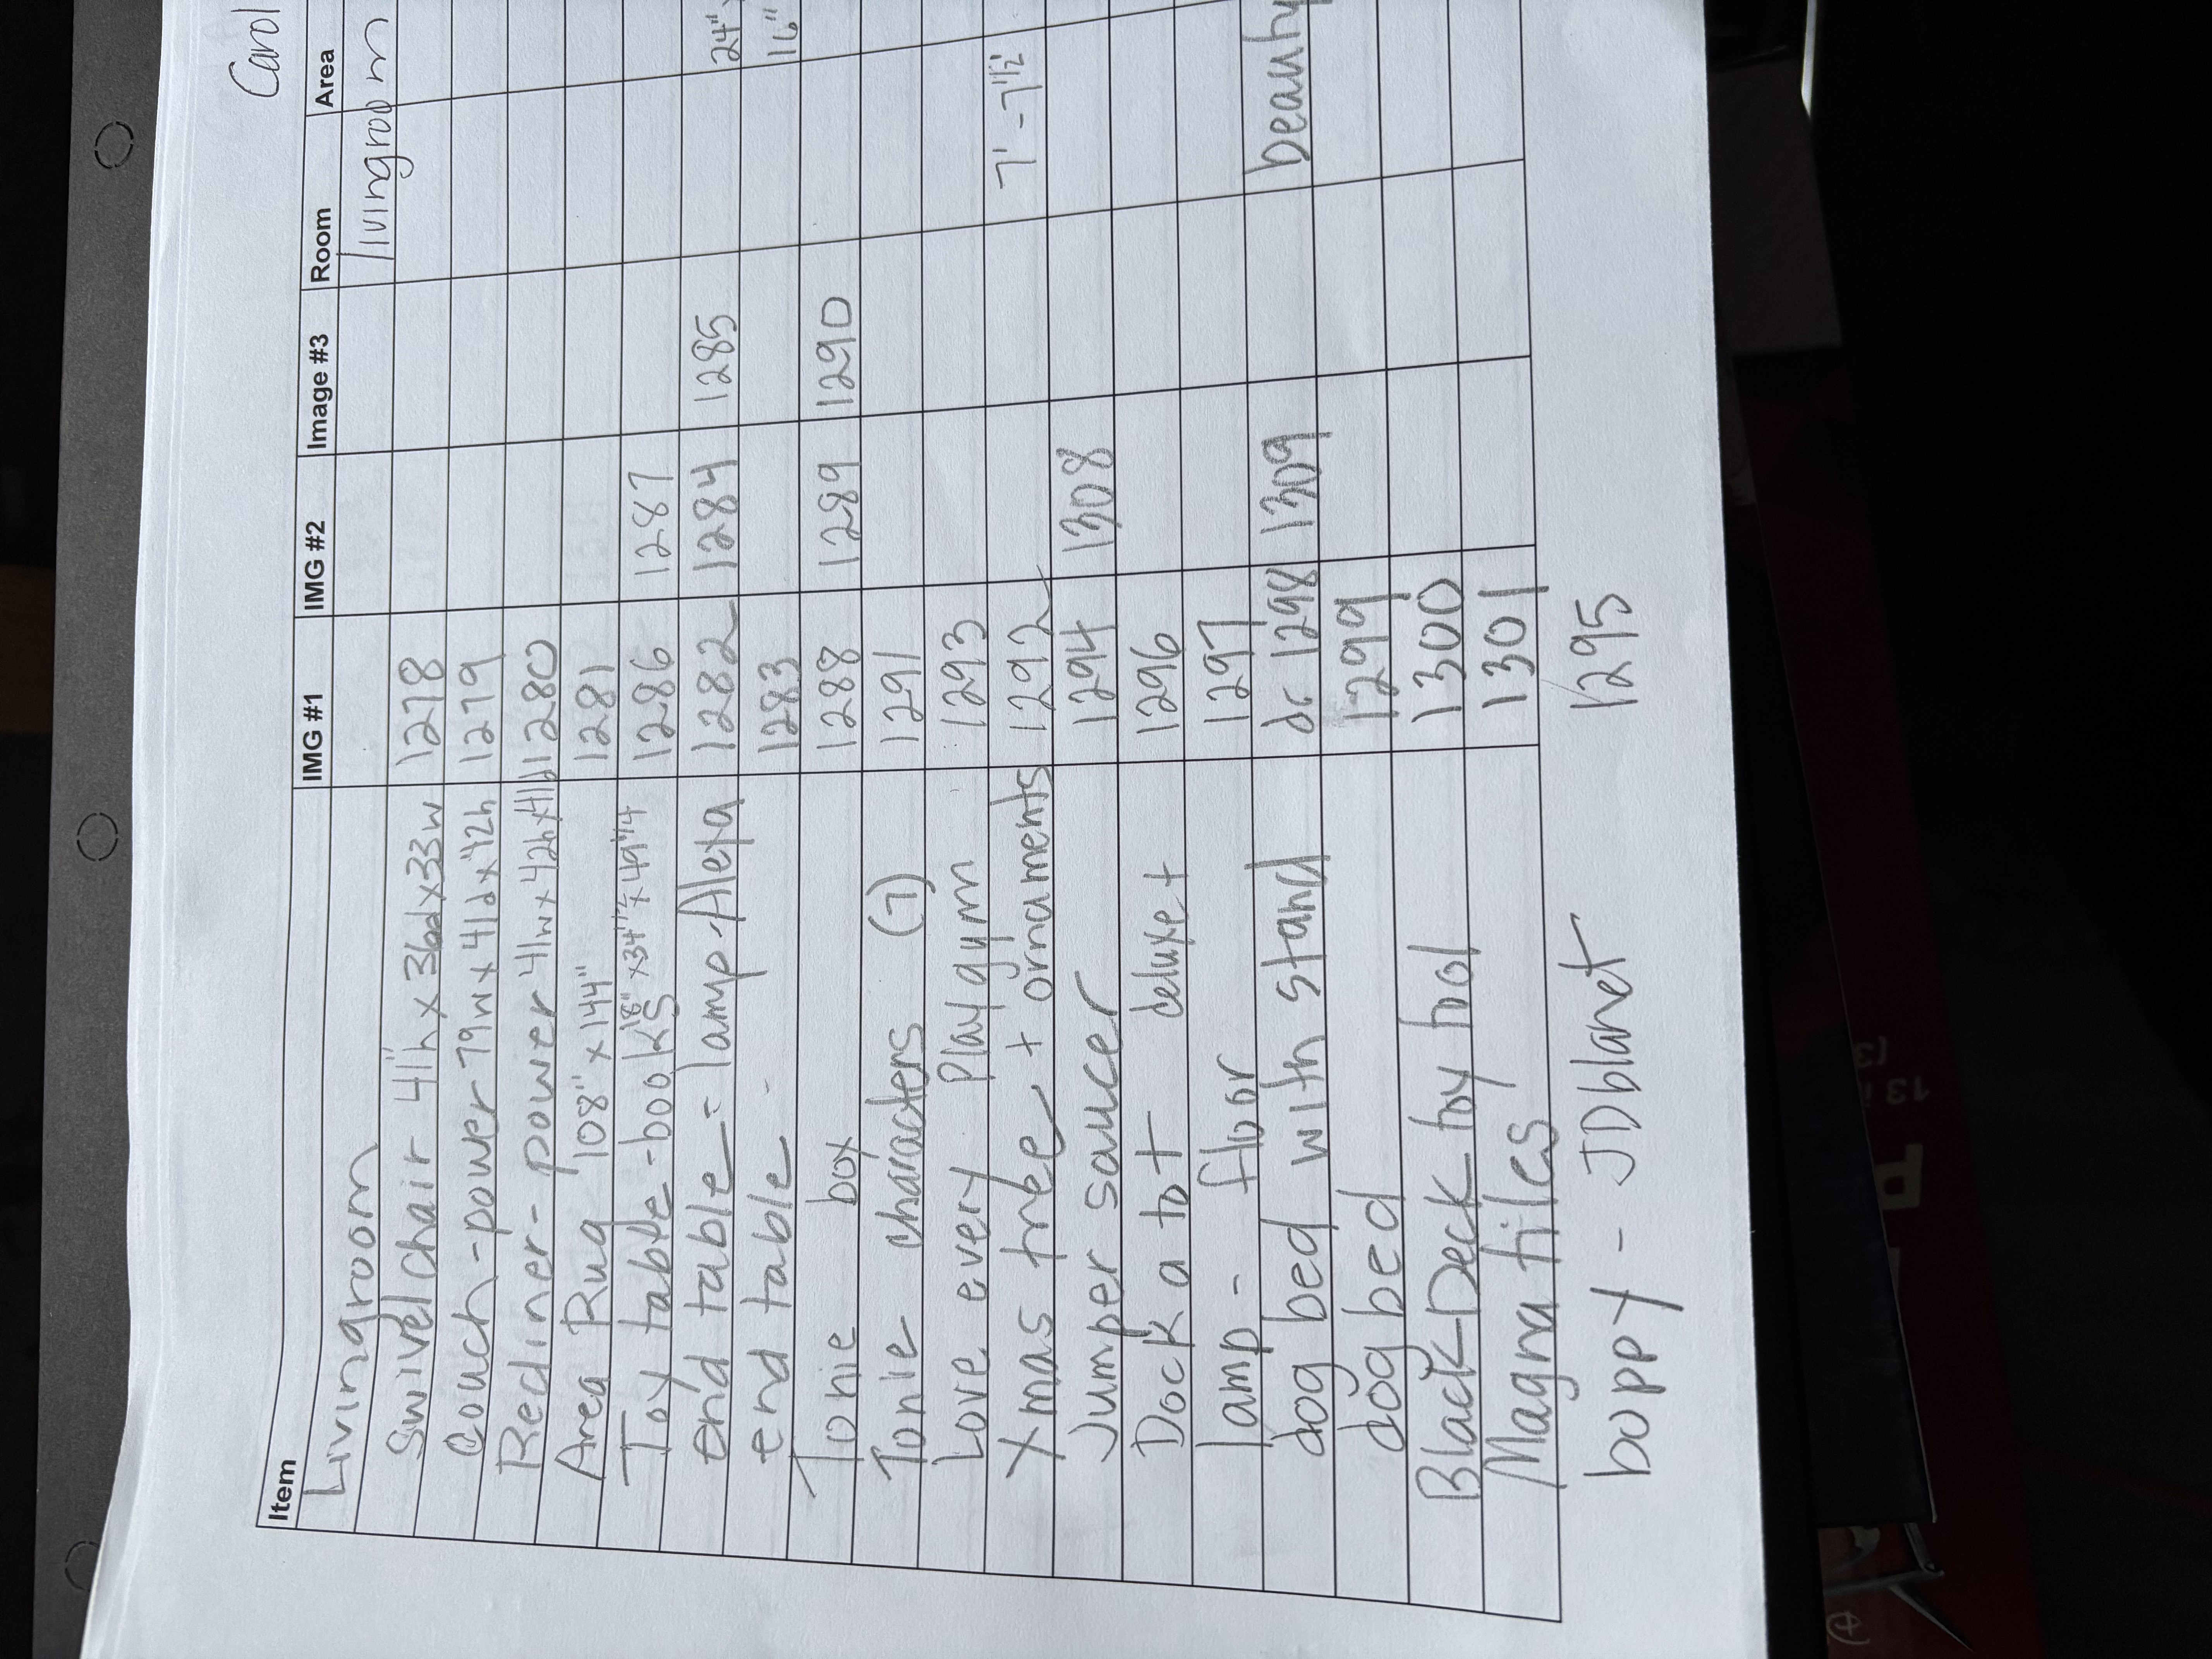 Carol
Item IMG #1 IMG #2 Image #3 Room Area
Livingroom livingroom
Swivel chair 41"h x 36d x 33w 1278
Couch - power 79w x 41d x 42h 1279
Recliner - power 41w x 42h x 41d 1280
Area Rug 108" x 144" 1281
Toy table - books 18" x 34 1/2" x 49 1/4 1286 1287
end table = lamp - Alexa 1282 1284 1285 24"
end table - 1283 16"
Tonie box 1288 1289 1290
Tonie characters (7) 1291
Love every Playgym 1293
Xmas tree + ornaments 1292 7' - 7 1/2'
Jumper saucer 1294 1308
Dock a tot deluxe + 1296
lamp - floor 1297
dog bed with stand 1298 1309
dog bed 1299
Black Deck toy hol 1300
Magna tiles 1301
boppy - 1295